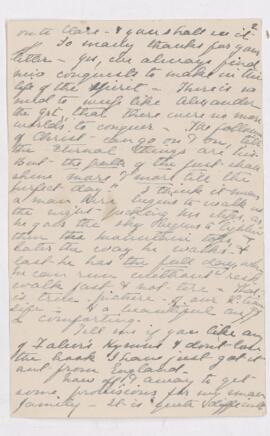 2
on to Clare - & you shall in it.
So many thanks for your
letter - yes, we always find
new conquests to make in the
life of the Spirit - There is no
need to weep like Alexander
the Grt, that there were no more
worlds to conquer - The follower
of Christ can go on & on, till
the Eternal things are his.
But the path of the just shall
shine more & more till the
perfect day." I think it means
a man here begins to walk in
the night - picking his steps, as
he goes the sky begins to lighten
over the mountain tops,
later the way he walks - &
last he has the full day when
he can run without rest
walk fast & not tire - This
is true picture of our
life - & a beautiful any
& comforting -
Tell me if you like any
of Faber's Hymns & don't
the book I have just got it
out from England -
now off away to get
some provisions for my small
family - It is quite